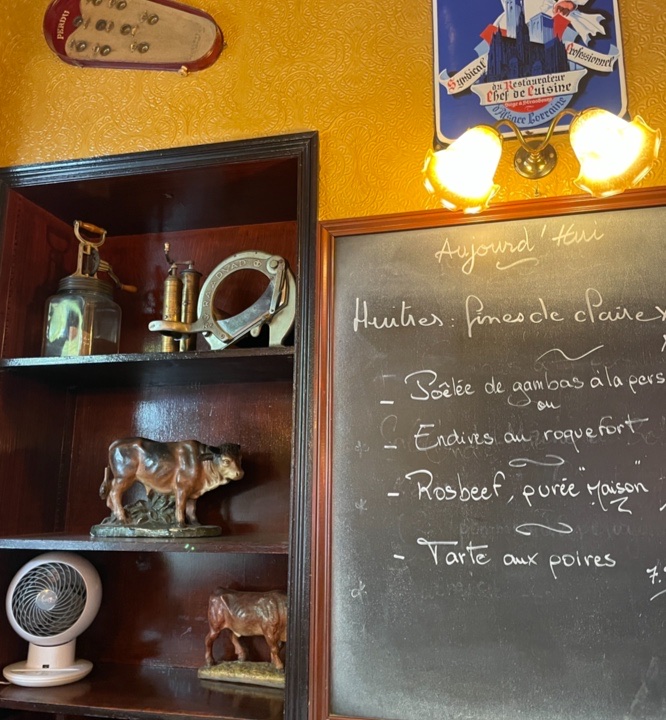 PERDU
Syndicat Professionnel
du Restaurateur
Chef de Cuisine
d'Alsace Lorraine
Aujourd'Hui
Huîtres : fines de claires
- Poêlée de gambas à la pers
ou
- Endives au roquefort
- Rosbeef, purée "Maison"
- Tarte aux poires
7.